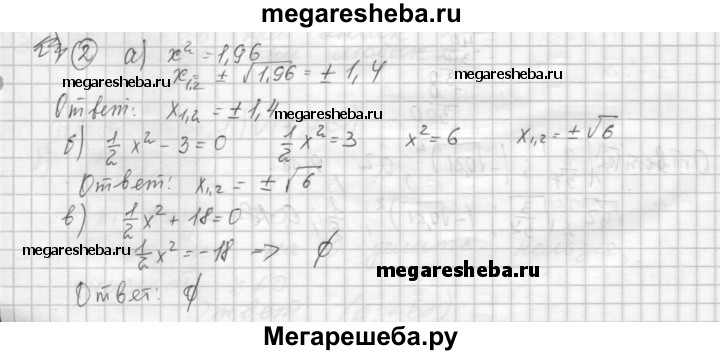 megaresheba.ru
② а) x² = 1,96
megaresheba.ru x₁,₂ = ± √1,96 = ± 1,4 megaresheba.ru
Ответ: x₁,₂ = ± 1,4 megaresheba.ru
б) 1/2 x² - 3 = 0 1/2 x² = 3 x² = 6 x₁,₂ = ± √6
Ответ: x₁,₂ = ± √6
в) 1/2 x² + 18 = 0
megaresheba.ru 1/2 x² = -18 => ∅ megaresheba.ru
Ответ: ∅
Мегарешеба.ру